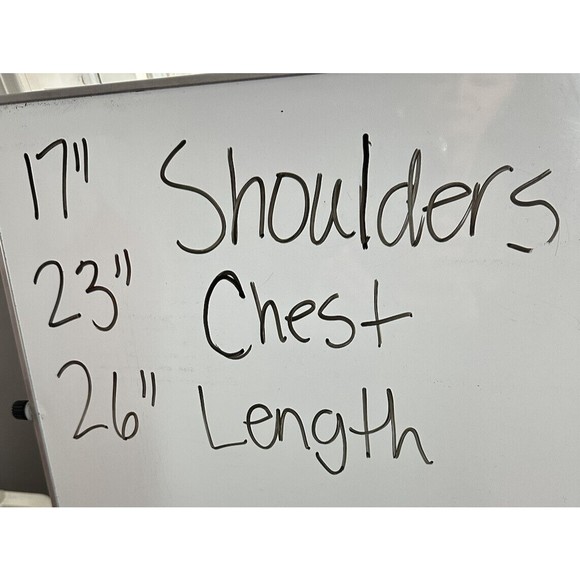 17" Shoulders
23" Chest
26" Length